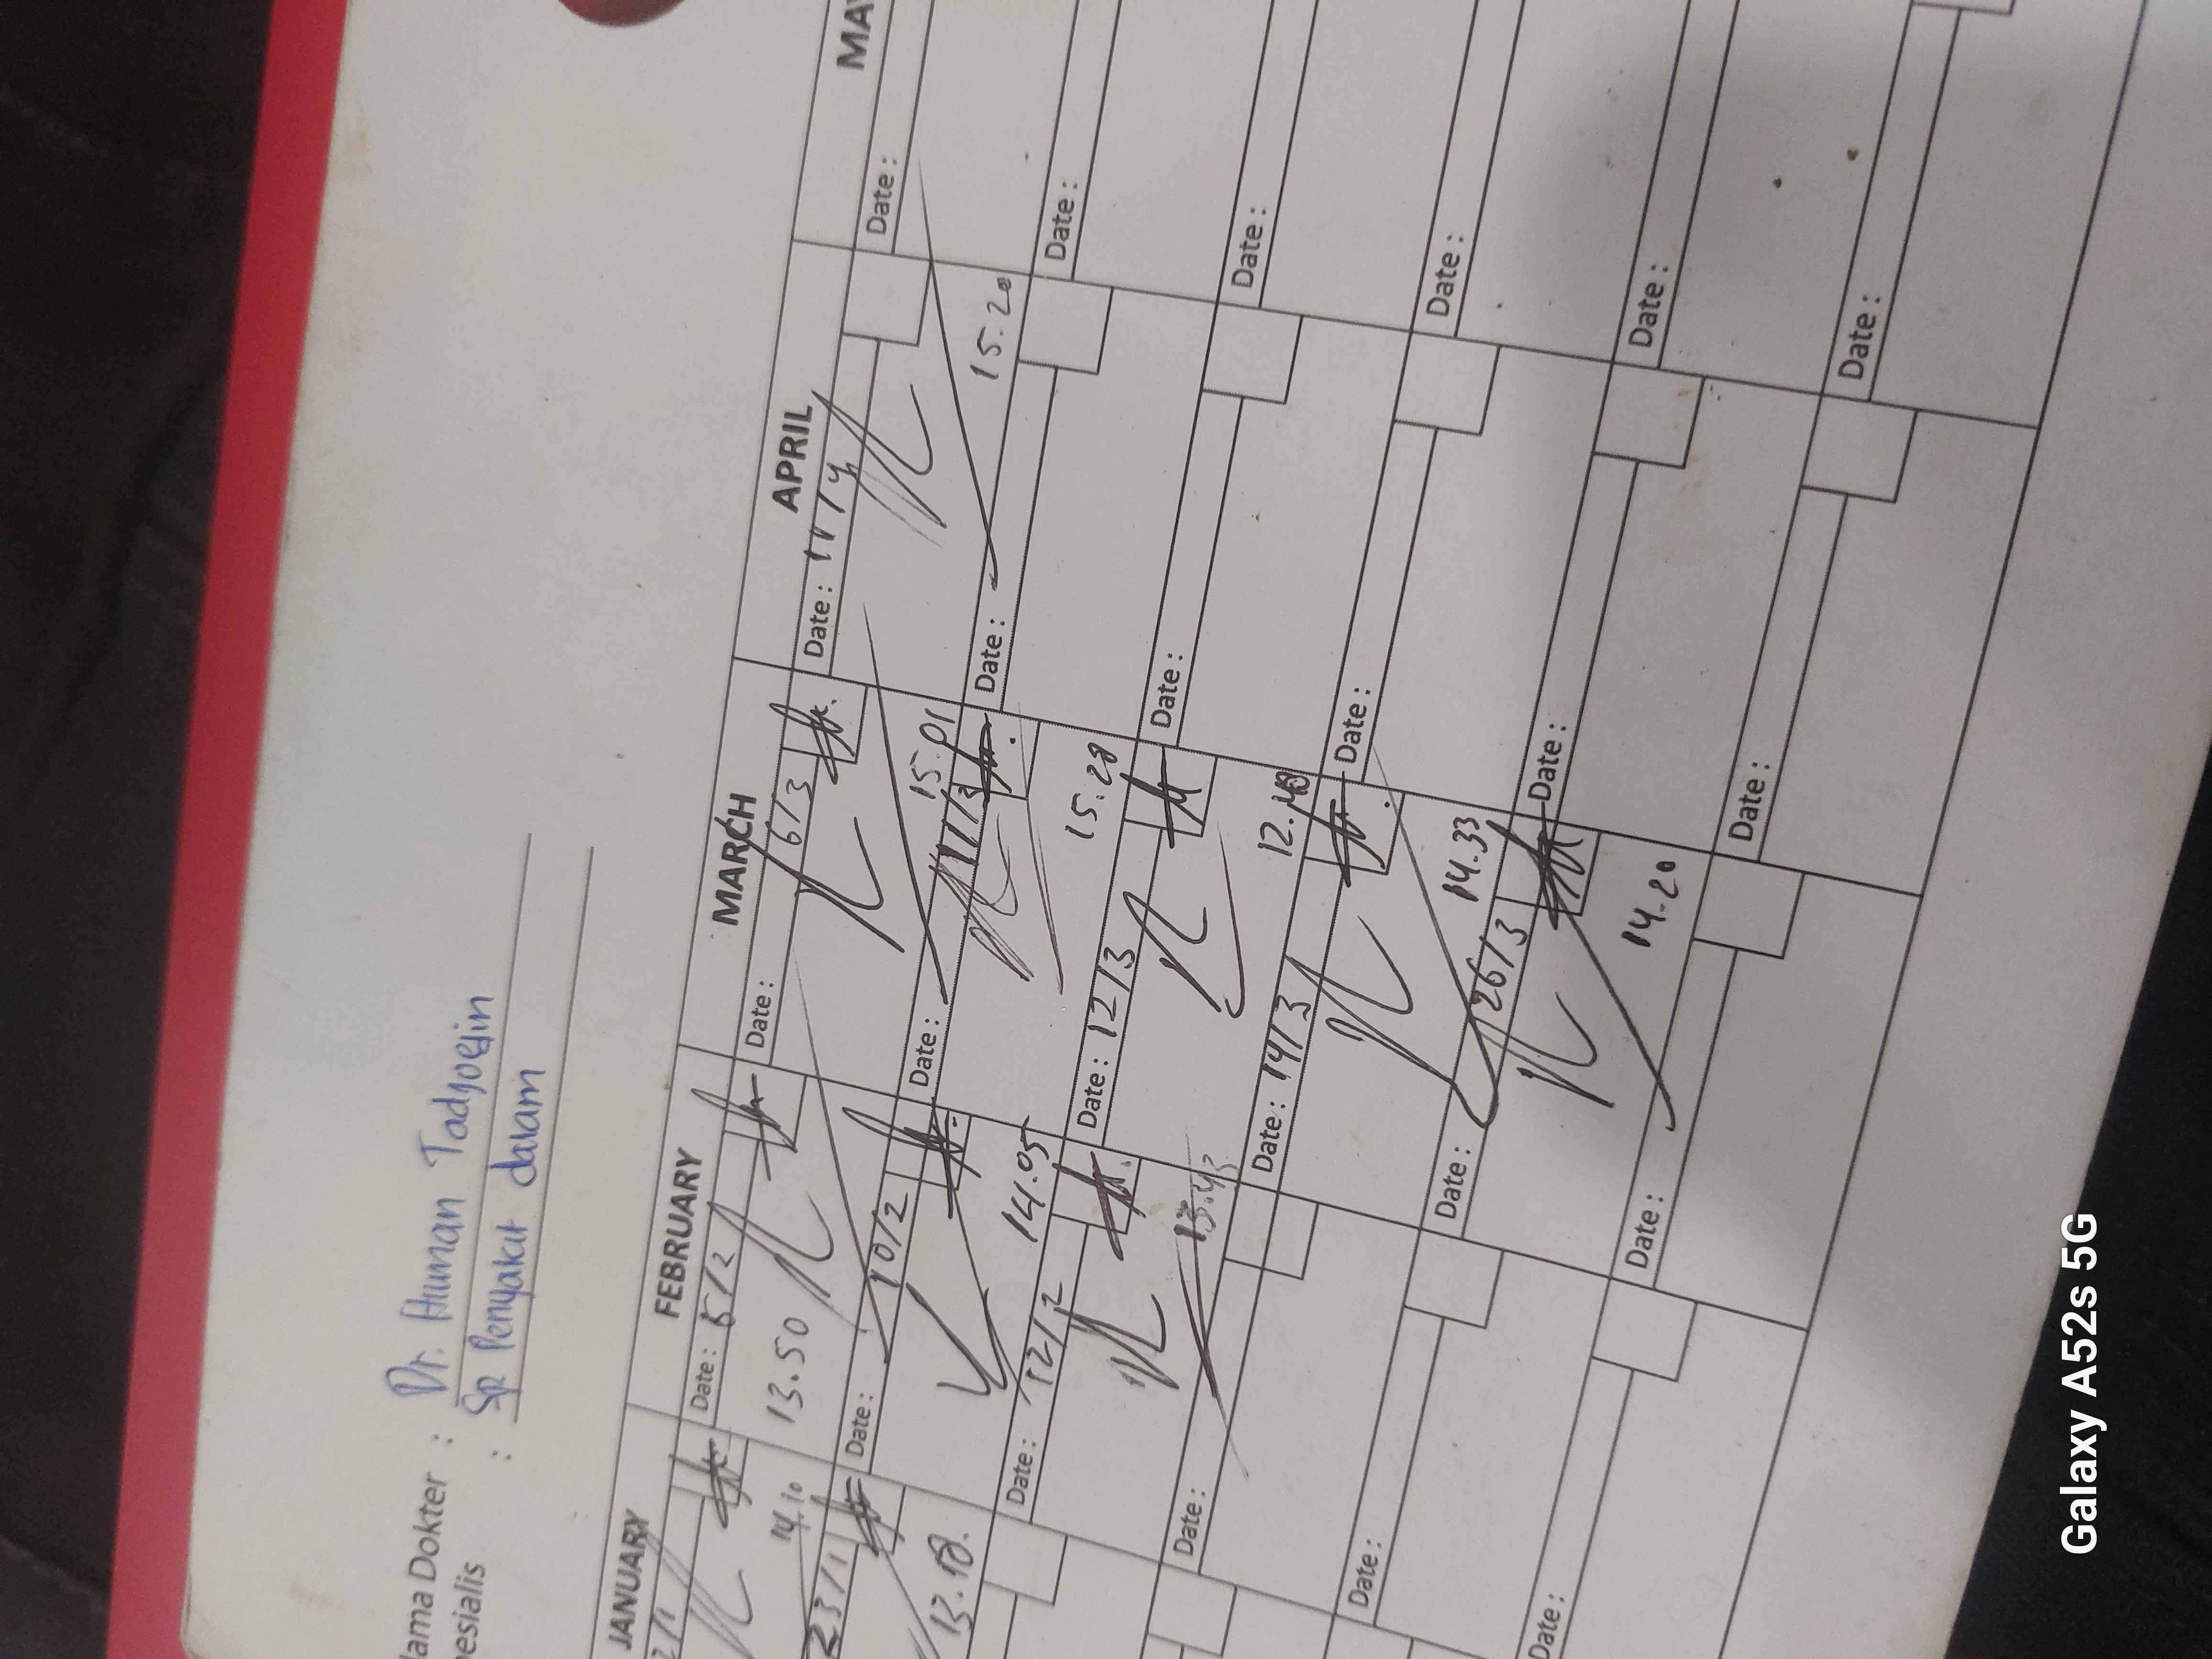 Nama Dokter : Dr. Aluman Tadjoedin
esialis : Sp Penyakit dalam
JANUARY FEBRUARY MARCH APRIL MAY
2/1 Date: 5/2 Date: 6/3 Date: 11/4 Date:
14.10 13.50 15.01 15.20
23/1 Date: 10/2 Date: 11/3 Date: Date:
13.18. 14.05 15.28
Date: 12/2 Date: 12/3 Date: Date:
13.43 12.40
Date: Date: 14/3 Date: Date:
14.33
Date: Date: 26/3 Date: Date:
14.20
Date: Date: Date: Date:
Galaxy A52s 5G